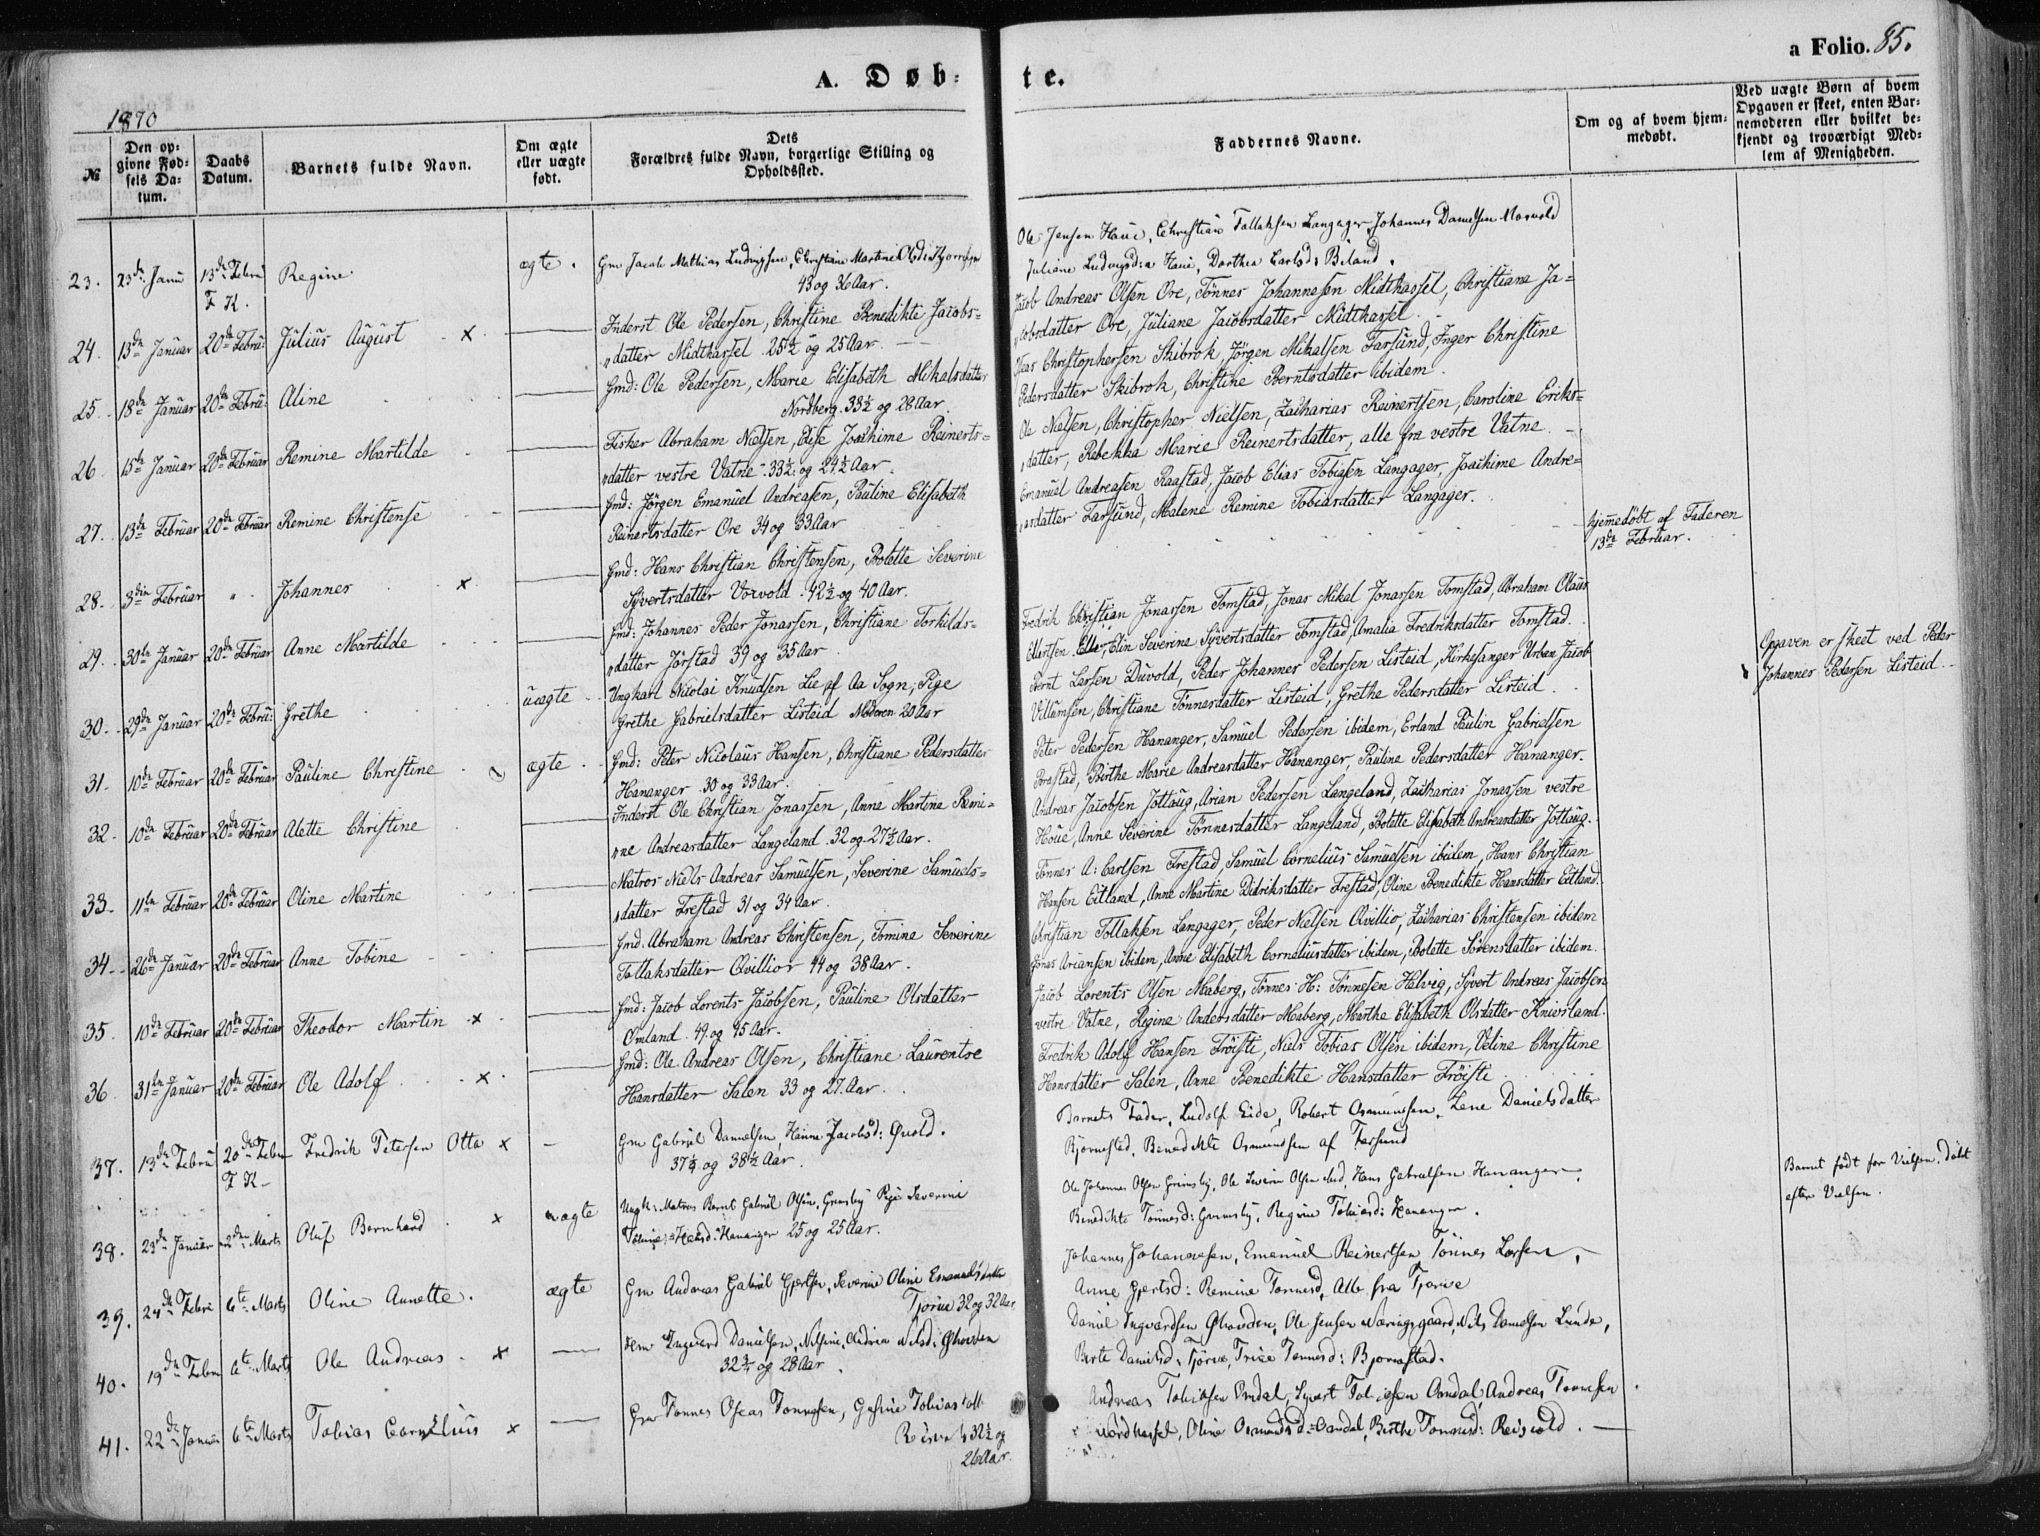 A. Døb-
te.
a Folio. 85.
1870
№
Den op-
givne Fød-
sels Da-
tum.
Daabs
Datum.
Barnets fulde Navn.
Om ægte
eller uægte
født.
Dets
Forældres fulde Navn, borgerlige Stilling og
Opholdssted.
Faddernes Navne.
Om og af hvem hjem-
medøbt.
Ved uægte Børn af hvem
Opgaven er skeet, enten Bar-
nemoderen eller hvilket be-
kjendt og troværdigt Med-
lem af Menigheden.
23. 23de Janu 13de Febru Regine ægte. Gm Jacob Mathias Ludvigsen, Christiane Martine Olsd:
F K. 43 og 36 Aar.
Ole Jensen Haue, Christian Tallaksen Langager, Johannes Danielsen
Juliane Ludvigsd: Haue, Dorthea Carlsd: Biland.
24. 13de Januar 20de Febru: Julius August x Inderst Ole Pedersen, Christine Benedikte Jacobs=
datter Midthassel 25½ og 25 Aar.
Jacob Andreas Olsen Ore, Tönnes Johannesen Midthassel, Christiana Ja=
cobsdatter Ore, Juliane Jacobsdatter Midthassel.
25. 18de Januar 20de Febru: Aline Gmd: Ole Pedersen, Marie Elisabeth Mikalsdatter
Nordberg 33½ og 28 Aar.
Oseas Christophersen Skibrok, Jörgen Mikalsen Farsund, Inger Christine
Pedersdatter Skibrok, Christine Berntsdatter ibidem.
26. 15de Januar 20de Februar Remine Martilde Fisker Abraham Nielsen, Elise Joachime Reinerts=
datter vestre Vatne 33½ og 24½ Aar.
Ole Nielsen, Christopher Nielsen, Zacharias Reinertsen, Caroline Eriks=
datter, Rebekka Marie Reinertsdatter, alle fra vestre Vatne.
27. 13de Februar 20de Februar Remine Christense Gmd: Jörgen Emanuel Andreasen, Pauline Elisabeth
Reinertsdatter Ore 34 og 33 Aar
Emanuel Andreasen Raastad, Jacob Elias Tobiasen Langager, Joachime Andre=
asdatter Farsund, Malene Remine Tobiasdatter Langager.
28. 3die Februar " Johannes x Gmd: Hans Christian Christensen, Bolette Severine
Syvertsdatter Vorvold 42½ og 40 Aar.
hjemedöbt af Faderen
13de Februar.
29. 30te Januar 20de Februar Anne Martilde Gmd: Johannes Peder Jonassen, Christiane Torkilds=
datter Jörstad 39 og 35 Aar
Fredrik Christian Jonassen Tomstad, Jonas Mikal Jonassen Tomstad, Abraham Olaus
Elin Severine Syvertsdatter Tomstad, Amalia Fredriksdatter Tomstad.
30. 29de Januar 20de Febru: Grethe uægte Ungkarl Nicolai Knudsen Lie af Aa Sogn, Pige
Grethe Gabrielsdatter Listeid Moderen 20 Aar
Bernt Larsen Duvold, Peder Johannes Pedersen Listeid, Kirkesanger Urban Jacob
Villumsen, Christiane Tönnesdatter Listeid, Grethe Pedersdatter Listeid.
Opgaven er skeet ved Peder
Johannes Pedersen Listeid.
31. 10de Februar 20de Februar Pauline Christine ægte Gmd: Peter Nicolaus Hansen, Christiane Pedersdatter
Hananger 30 og 33 Aar.
Peter Pedersen Hananger, Samuel Pedersen ibidem, Erland Paulin Gabrielsen
Birthe Marie Andreasdatter Hananger, Pauline Pedersdatter Hananger.
32. 10de Februar 20de Februar Alette Christine Inderst Ole Christian Jonassen, Anne Martine Remi=
ne Andreasdatter Langeland 32 og 27½ Aar.
Andreas Jacobsen Jöllaug, Arian Pedersen Langeland, Zacharias Jonassen vestre
Houe, Anne Severine Tönnesdatter Langeland, Bolette Elisabeth Andreasdatter Jöllaug.
33. 11te Februar 20de Februar Oline Martine Matros Niels Andreas Samuelsen, Severine Samuels=
datter Frestad 31 og 34 Aar.
Tönnes A: Carlsen Frestad, Samuel Cornelius Samuelsen ibidem, Hans Christian
Hansen Eitland, Anne Martine Didriksdatter Frestad, Oline Benedikte Hansdatter Eitland.
34. 26de Januar 20de Februar Anne Tobine Gmd: Abraham Andreas Christensen, Tomine Severine
Tallaksdatter Qvillior 44 og 38 Aar.
Christian Tollaksen Langager, Peder Nielsen Qvillio, Zacharias Christensen ibidem
Jonas Ariansen ibidem, Anne Elisabeth Corneliusdatter ibidem, Bolette Sörensdatter ibidem.
35. 10de Februar 20de Februar Theodor Martin x Gmd: Jacob Lorents Jacobsen, Pauline Olsdatter
Omland 49 og 45 Aar.
Jacob Lorents Olsen Maberg, Tönnes H: Tönnesen Helvig, Syvert Andreas Jacobsen
vestre Vatne, Regine Andersdatter Maberg, Marthe Elisabeth Olsdatter Kniersland.
36. 31te Januar 20de Februar Ole Adolf x Gmd: Ole Andreas Olsen, Christiane Laurentse
Hansdatter Salen 33 og 27 Aar.
Fredrik Adolf Hansen Fröisti, Niels Tobias Olsen ibidem, Veline Christine
Hansdatter Salen, Anne Benedikte Hansdatter Fröisti
37. 13de Febru 20de Febru Fredrik Petersen Otto x Gm Gabriel Danielsen, Hanne Jacobsd: Qvold.
F K 37¼ og 38½ Aar.
Barnets Fader, Ludolf Eide, Robert Osmundsen, Lene Danielsdatter
Bjørnestad, Benedikte Osmundsen af Farsund
38. 23de Januar 2den Marts Oluf Bernhard x uægte Ungk: Matros Bernt Gabriel Olsen, Grimsby Pige Severine
Hananger 25 og 25 Aar.
Ole Johannes Olsen Grimsby, Ole Severin Olsen Hans Gabrielsen Hananger
Benedikte Tönnesd: Grimsby, Regine Tobiasd: Hananger.
Barnet født før Vielsen, døbt
efter Vielsen.
39. 24de Febru 6te Marts Oline Annette. ægte Gm Andreas Gabriel Gjertsen, Severine Oline Emanuelsdatter
Tjørve 32 og 32 Aar
Johannes Johannesen, Emanuel Reinertsen Tönnes Larsen,
Anne Gjertsd: Remine Tönnesd, Alle fra Tjørve
40. 19de Febru 6te Marts Ole Andreas x Gm Ingvard Danielsen, Nilsine Andrea Nilsd:
32¾ og 28 Aar
Daniel Ingvardsen Ole Jensen Næringsgaard, Nils Danielsen Lunde,
Berte Danielsd: Tjørve, Trine Tønnesd: Bjørnestad.
41. 22de Januar 6te Marts Tobias Cornelius x Gm Tønnes Oseas Tønnesen, Gesine Tobiasdatt
32½ og
26 Aar.
Andreas Tobiasen Omdal, Syvert Tobiasen Omdal, Andreas Tønnesen
Nordhassel, Oline Osmundsd: Omdal, Birthe Tønnesd: Reisvold.